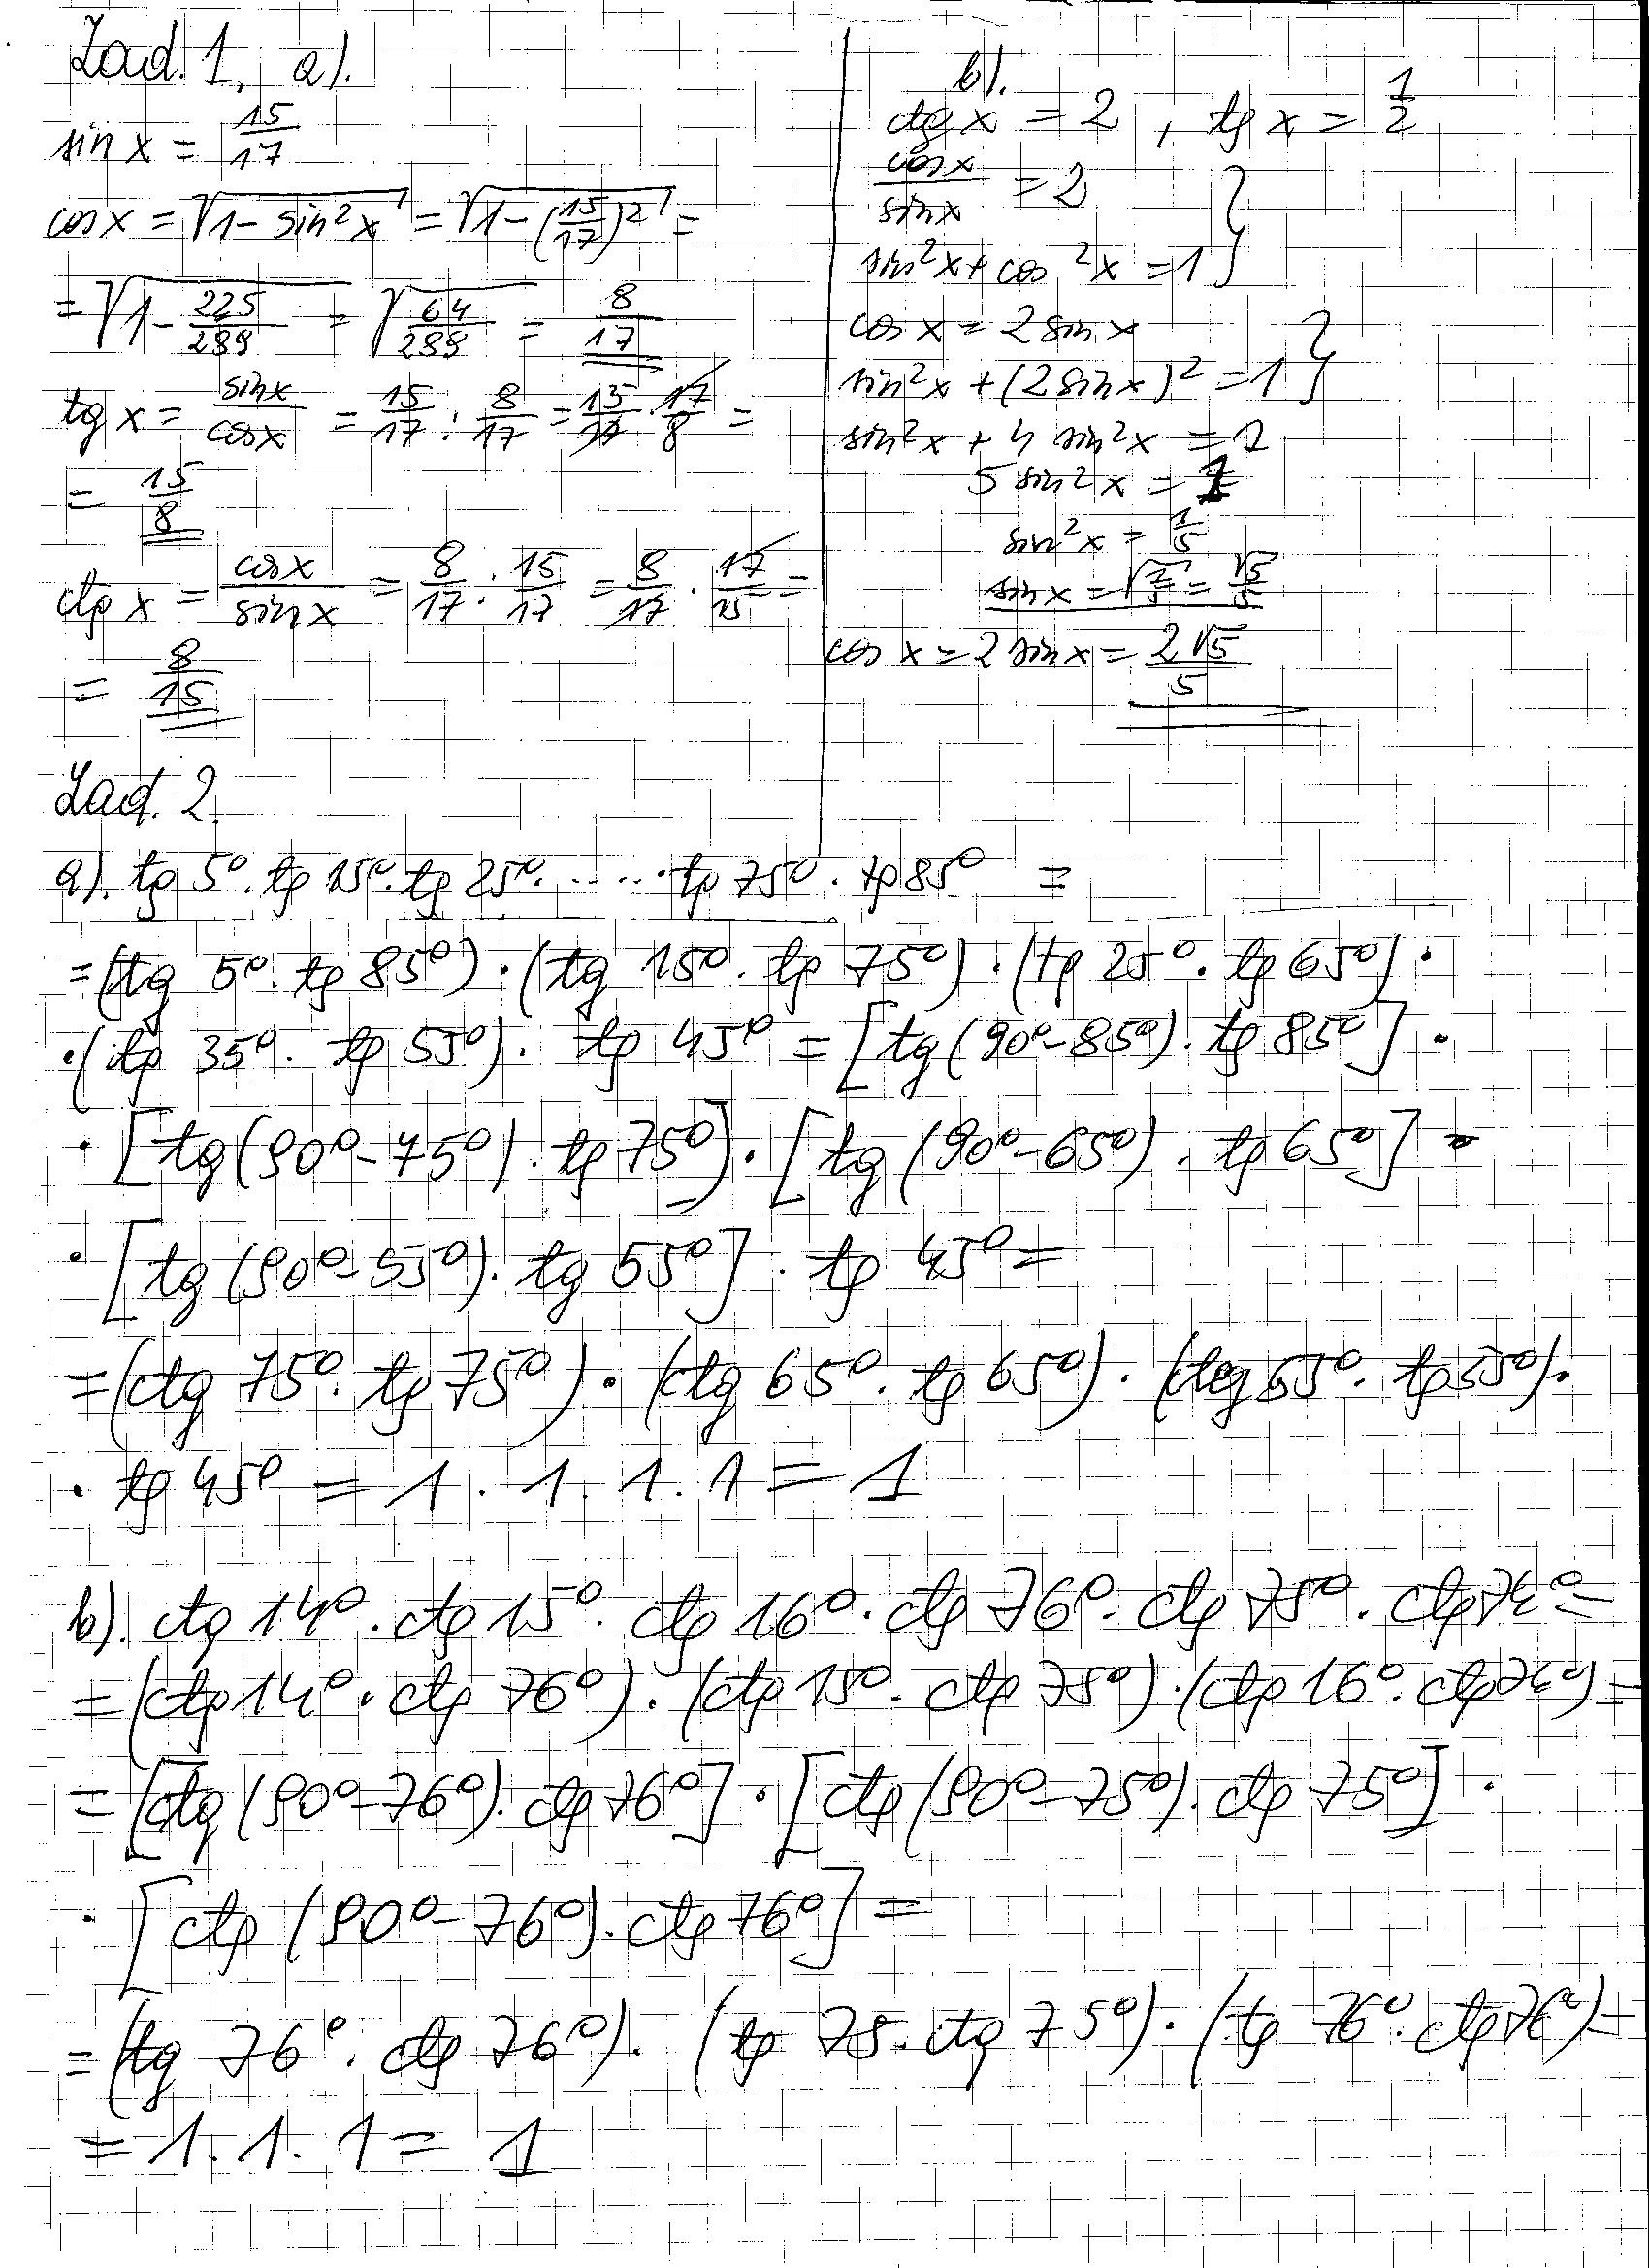 Zad. 1, a).
sin x = 15/17
cos x = √(1 - sin²x) = √(1 - (15/17)²) =
= √(1 - 225/289) = √(64/289) = 8/17
tg x = sinx/cosx = 15/17 : 8/17 = 15/17 · 17/8 =
= 15/8
ctg x = cosx/sinx = 8/17 : 15/17 = 8/17 · 17/15 =
= 8/15
b).
ctg x = 2, tg x = 1/2
cosx/sinx = 2 }
sin²x + cos²x = 1 }
cos x = 2 sin x }
sin²x + (2 sin x)² = 1 }
sin²x + 4 sin²x = 1
5 sin²x = 1
sin²x = 1/5
sin x = √(1/5) = √5/5
cos x = 2 sin x = 2√5/5
Zad. 2.
a). tg 5° · tg 15° · tg 25° · ..... · tg 75° · tg 85° =
= (tg 5° · tg 85°) · (tg 15° · tg 75°) · (tg 25° · tg 65°) ·
· (tg 35° · tg 55°) · tg 45° = [tg (90° - 85°) · tg 85°] ·
· [tg (90° - 75°) · tg 75°] · [tg (90° - 65°) · tg 65°] ·
· [tg (90° - 55°) · tg 55°] · tg 45° =
= (ctg 75° · tg 75°) · (ctg 65° · tg 65°) · (ctg 55° · tg 55°) ·
· tg 45° = 1 · 1 · 1 · 1 = 1
b). ctg 14° · ctg 15° · ctg 16° · ctg 76° · ctg 75° · ctg 74° =
= (ctg 14° · ctg 76°) · (ctg 15° · ctg 75°) · (ctg 16° · ctg 74°) =
= [ctg (90° - 76°) · ctg 76°] · [ctg (90° - 75°) · ctg 75°] ·
· [ctg (90° - 76°) · ctg 76°] =
= (tg 76° · ctg 76°) · (tg 75 · ctg 75°) · (tg 76° · ctg 76°) =
= 1 · 1 · 1 = 1